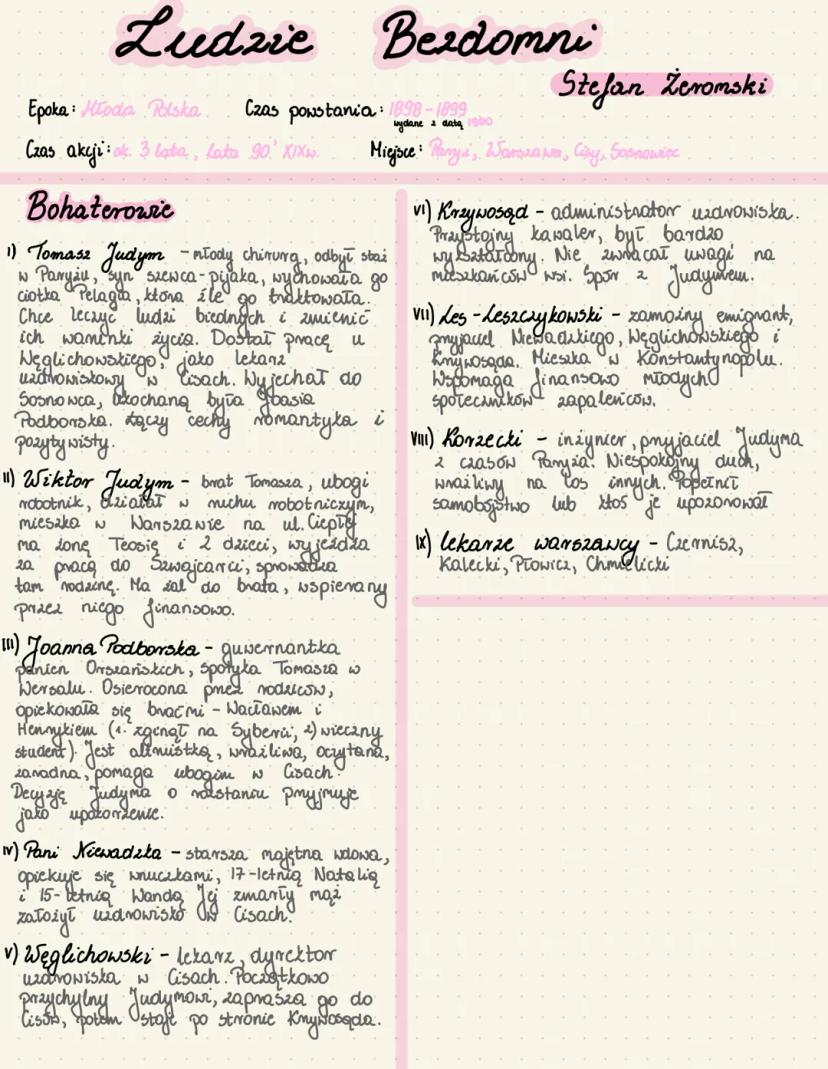 Ludzie Bezdomni
Stefan Żeromski
Epoka: Młoda Polska Czas powstania: 1898-1899
wydane z datą 1900
Czas akcji: ok. 3 lata, lata 90' XIXw. Miejsce: Paryż, Warszawa, Cisy, Sosnowiec
Bohaterowie
I) Tomasz Judym - młody chirurg, odbył staż
w Paryżu, syn szewca-pijaka, wychowała go
ciotka Pelagia, która źle go traktowała.
Chce leczyć ludzi biednych i zmienić
ich warunki życia. Dostał pracę u
Węglichowskiego, jako lekarz
uzdrowiskowy w Cisach. Wyjechał do
Sosnowca, ukochaną była Joasia
Podborska. Łączy cechy romantyka i
pozytywisty.
II) Wiktor Judym - brat Tomasza, ubogi
robotnik, działał w ruchu robotniczym,
mieszka w Warszawie na ul. Ciepłej
ma żonę Teosię i 2 dzieci, wyjeżdża
za pracą do Szwajcarii, sprowadza
tam rodzinę. Ma żal do brata, wspierany
przez niego finansowo.
III) Joanna Podborska - guwernantka
panien Orszańskich, spotyka Tomasza w
Wersalu. Osierocona przez rodziców,
opiekowała się braćmi - Wacławem i
Henrykiem (1. zginął na Syberii, 2) wieczny
student). Jest altruistką, wrażliwa, oczytana,
zaradna, pomaga ubogim w Cisach.
Decyzję Judyma o rozstaniu przyjmuje
jako upokorzenie.
IV) Pani Niewadzka - starsza majętna wdowa,
opiekuje się wnuczkami, 17-letnią Natalią
i 15-letnią Wandą Jej zmarły mąż
założył uzdrowisko w Cisach.
V) Węglichowski - lekarz, dyrektor
uzdrowiska w Cisach. Początkowo
przychylny Judymowi, zaprasza go do
Cisów, potem staje po stronie Krzywosąda.
VI) Krzywosąd - administrator uzdrowiska.
Przystojny kawaler, był bardzo
wykształcony. Nie zwracał uwagi na
mieszkańców wsi. Spór z Judymem.
VII) Les-Leszczykowski - zamożny emigrant,
przyjaciel Niewadzkiego, Węglichowskiego i
Krzywosąda. Mieszka w Konstantynopolu.
Wspomaga finansowo młodych
społeczników zapaleńców.
VIII) Korzecki - inżynier, przyjaciel Judyma
z czasów Paryża. Niespokojny duch,
wrażliwy na los innych. Popełnił
samobójstwo lub ktoś je upozorował
IX) lekarze warszawscy - Czernisz,
Kalecki, Płowicz, Chmielicki